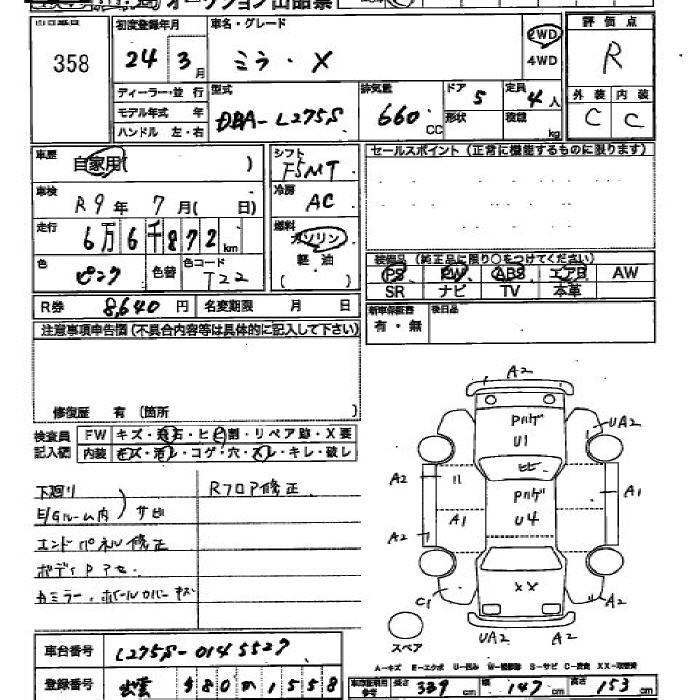 オークション出品票
358
初度登録年月 車名・グレード 2WD 評価点
24年 3月 ミラ・X 4WD R
ディーラー・並行 型式 排気量 ドア 5 定員 4人 外装 内装
モデル年式 年 DBA-L275S 660CC 形状 積載 kg C C
ハンドル 左・右
車歴 自家用( ) シフト F5MT セールスポイント(正常に機能するものに限ります)
車検 R9年 7月( 日) 冷房 AC
走行 6万6千872km 燃料 ガソリン
軽油
( )
色 ピンク 色替 色コード T22 装備品(純正品に限り○をつけてください)
PS PW ABS エアB AW
SR ナビ TV 本革
R券 8,640円 名変期限 月 日 新車保証書 後日品
有・無
注意事項申告欄(不具合内容等は具体的に記入して下さい)
修復歴 有(箇所 )
検査員 FW キズ・飛石・ヒビ割・リペア跡・X要
記入欄 内装 キズ・汚レ・コゲ・穴・スレ・キレ・破レ
下廻リ Rフロア修正
E/Gルーム内 サビ
エンドパネル修正
ボディPアセ
カミラー・ホイールカバーキズ
A2
Pハゲ
U1
UA2
ヒビ
A2
Pハゲ
U4
A1
A1
A2
XX
C1
A2
UA2
A2
スペア
A-キズ E-エクボ U-凹み W-補修跡 S-サビ C-腐食 XX-交換済
車台番号 L275S-0145527
登録番号 出雲 580 1558 長さ 339 幅 147 cm 高さ 153 cm